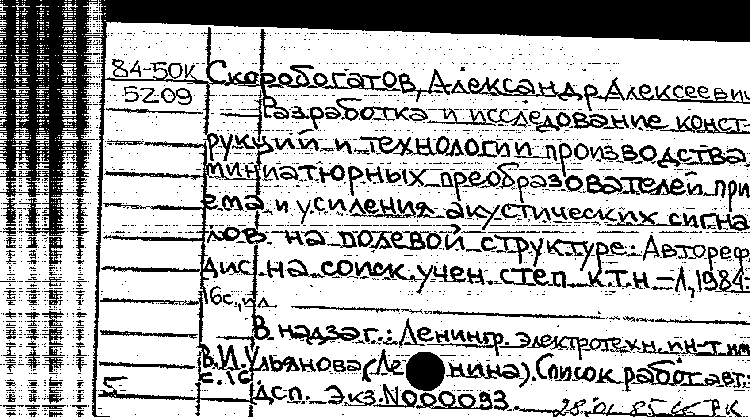 84-50К Скоробогатов, Александр Алексеевич
5209
Разработка и исследование конст-
рукций и технологии производства
миниатюрных преобразователей при
ема и усиления акустических сигна
лов на полевой структуре: Автореф
дис. на соиск. учен. степ. к.т.н. – Л, 1984.-
16с., ил
В надзаг.: Ленингр. электротехн. ин-т им
В.И. Ульянова (Ле нина). Список работ авт.:
с. 16
5 ДСП. Экз.N000093. 28.01.85